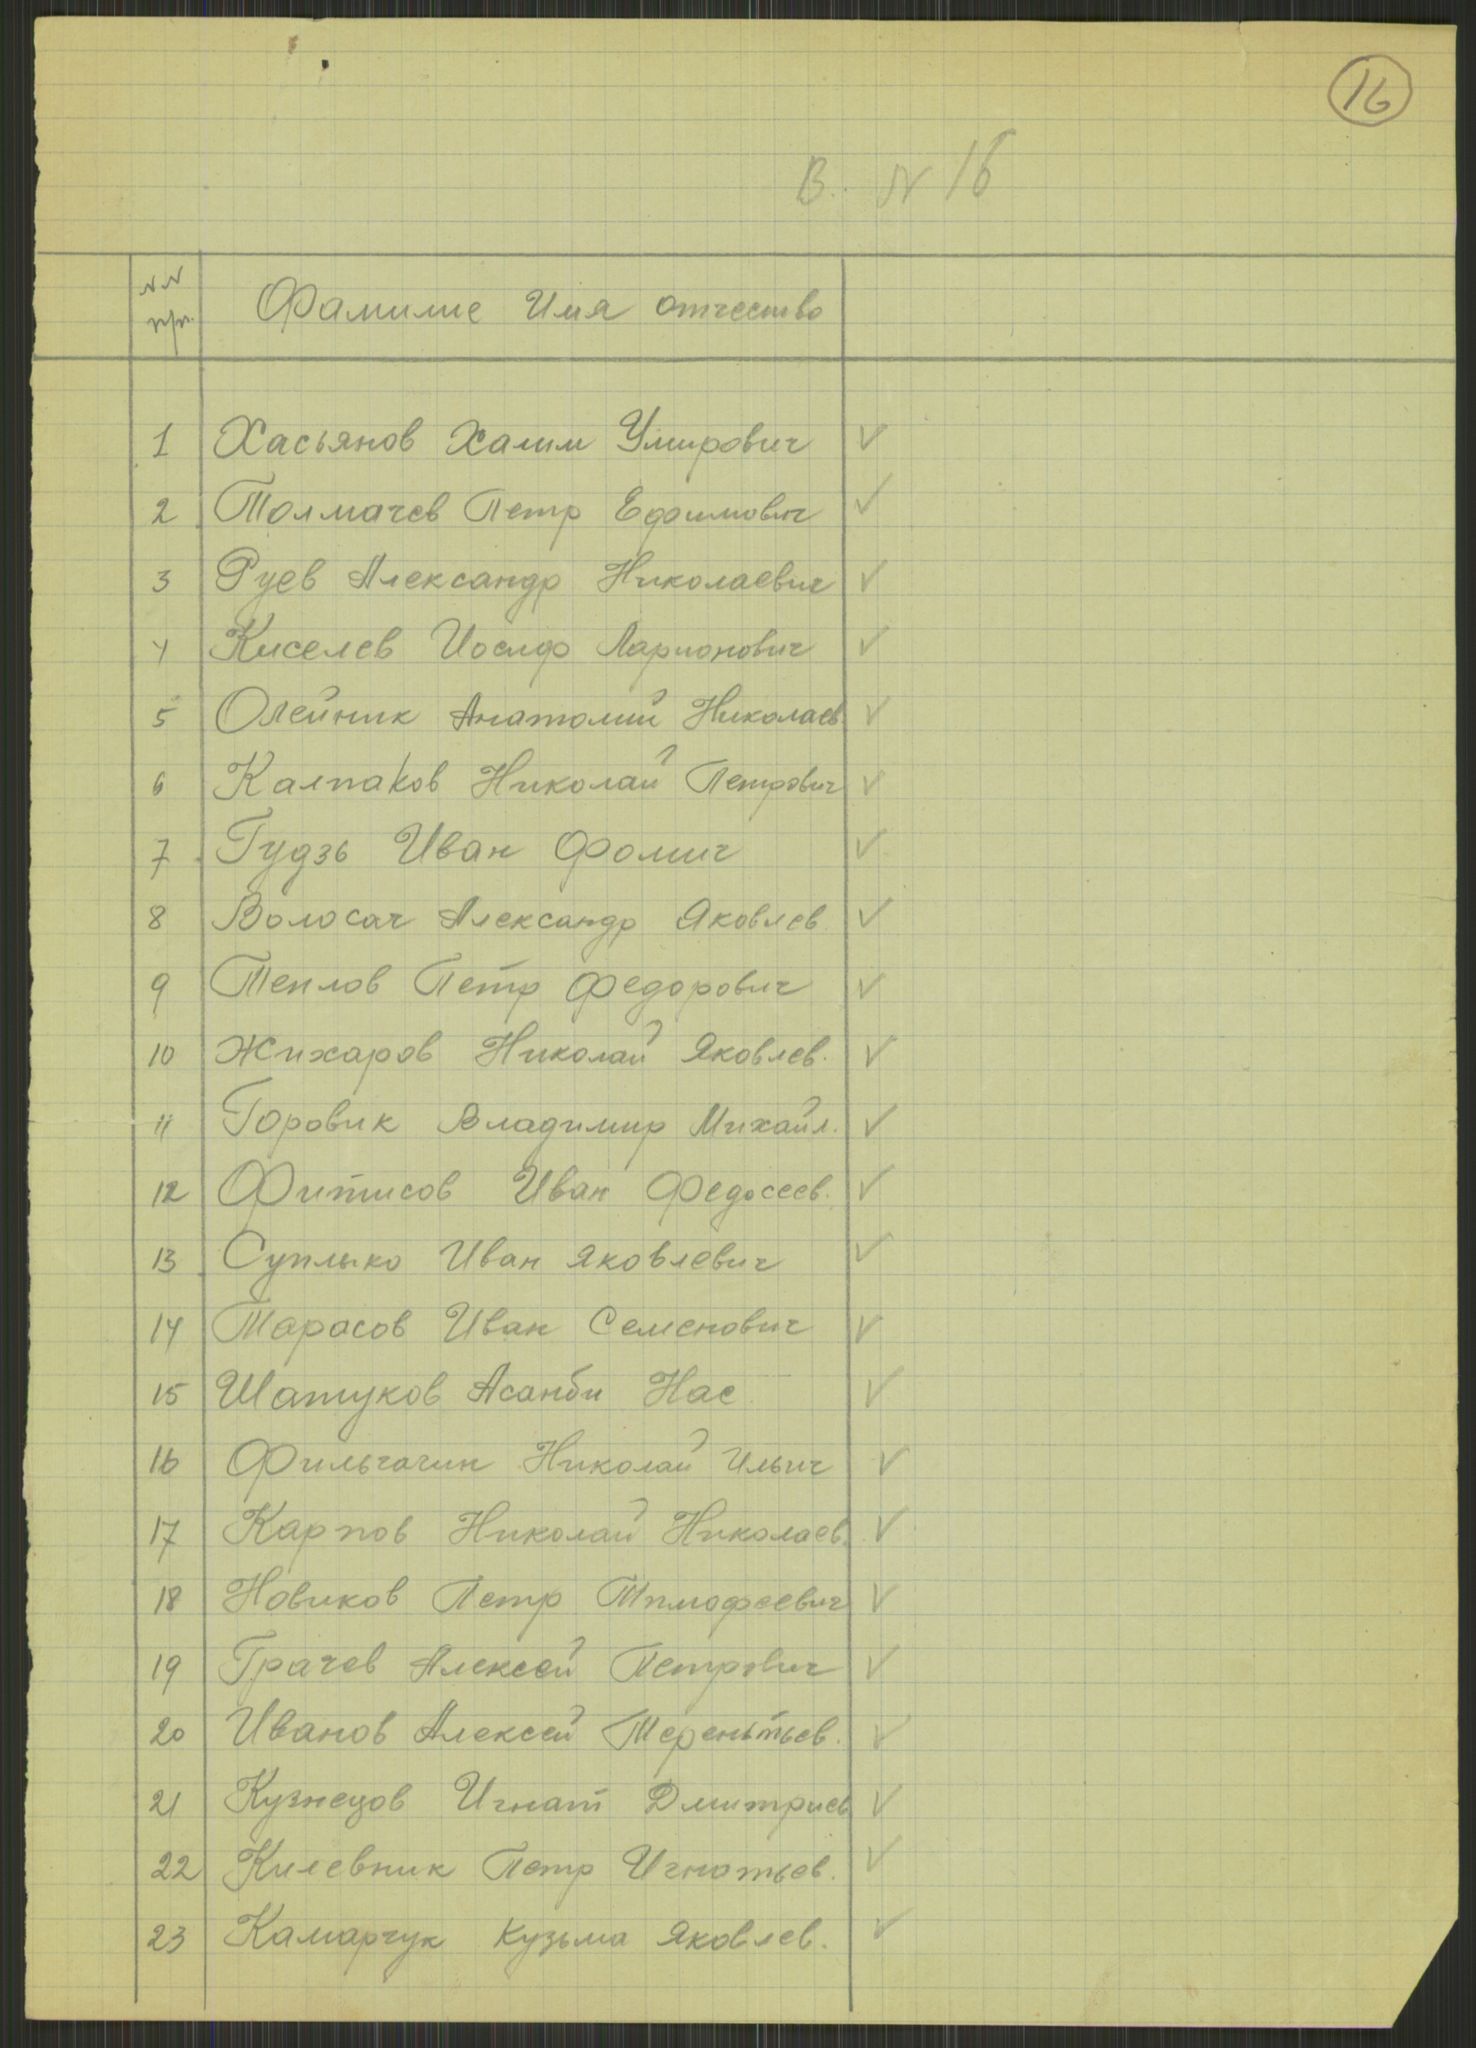 16
В. N 16
NN п/п. Фамилие Имя отчество
1 Хасьянов Халим Умирович ✓
2 Толмачев Петр Ефимович ✓
3 Руев Александр Николаевич ✓
4 Киселев Иосиф Ларионович ✓
5 Олейник Анатолий Николаев ✓
6 Калпаков Николай Петрович ✓
7 Гудзь Иван Фомич ✓
8 Волосач Александр Яковлев. ✓
9 Теплов Петр Федорович ✓
10 Жихаров Николай Яковлев. ✓
11 Горовик Владимир Михайл. ✓
12 Фитисов Иван Федосеев. ✓
13 Суплыко Иван Яковлевич ✓
14 Тарасов Иван Семенович ✓
15 Шатуков Асанби Нас ✓
16 Фильчагин Николай Ильич ✓
17 Карпов Николай Николаев. ✓
18 Новиков Петр Тимофеевич ✓
19 Грачев Алексей Петрович ✓
20 Иванов Алексей Терентьев. ✓
21 Кузнецов Игнат Дмитриев ✓
22 Килевник Петр Игнатьев. ✓
23 Камарчук Кузьма Яковлев. ✓